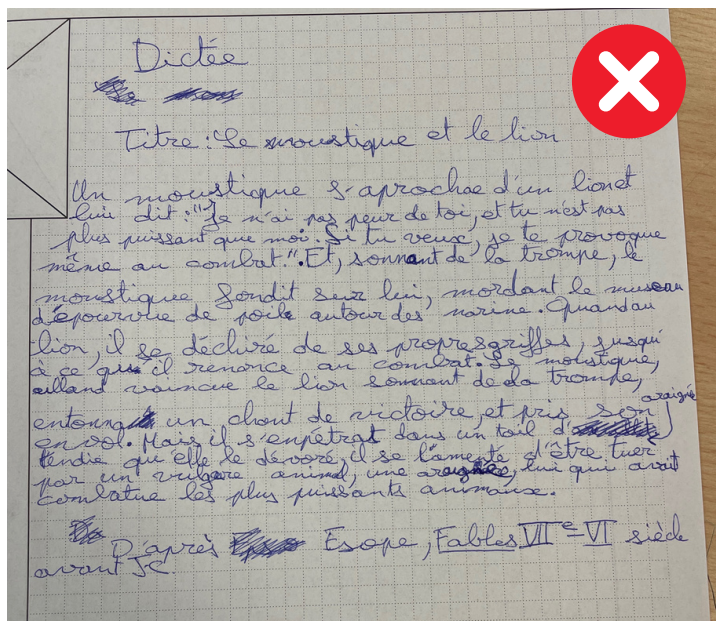 Dictée
Titre : Le moustique et le lion
Un moustique s'aprochae d'un lion et
lui dit : "Je n'ai pas peur de toi, et tu n'est pas
plus puissant que moi. Si tu veux, je te provoque
même au combat.". Et, sonnant de la trompe, le
moustique fondit seur lui, mordant le museau
d'épourvue de poile autour des narine. Quand au
lion, il se déchiré de ses propres griffes, jusqu'
à ce qu'il renonce au combat. Le moustique,
aılland vaincue le lion sonnant de da trompe,
entonna un chant de victoire, et pris son
envol. Mais il s'enpétrat dans un toil d' araignée
tendie qu'elle le dévoré, il se l'amenté d'être tuer
par un vulgare animal, une araignée, lui qui avait
combatue les plus puissants animaux.
D'après Esope, Fables VIIe-VI siècle
avant JC.